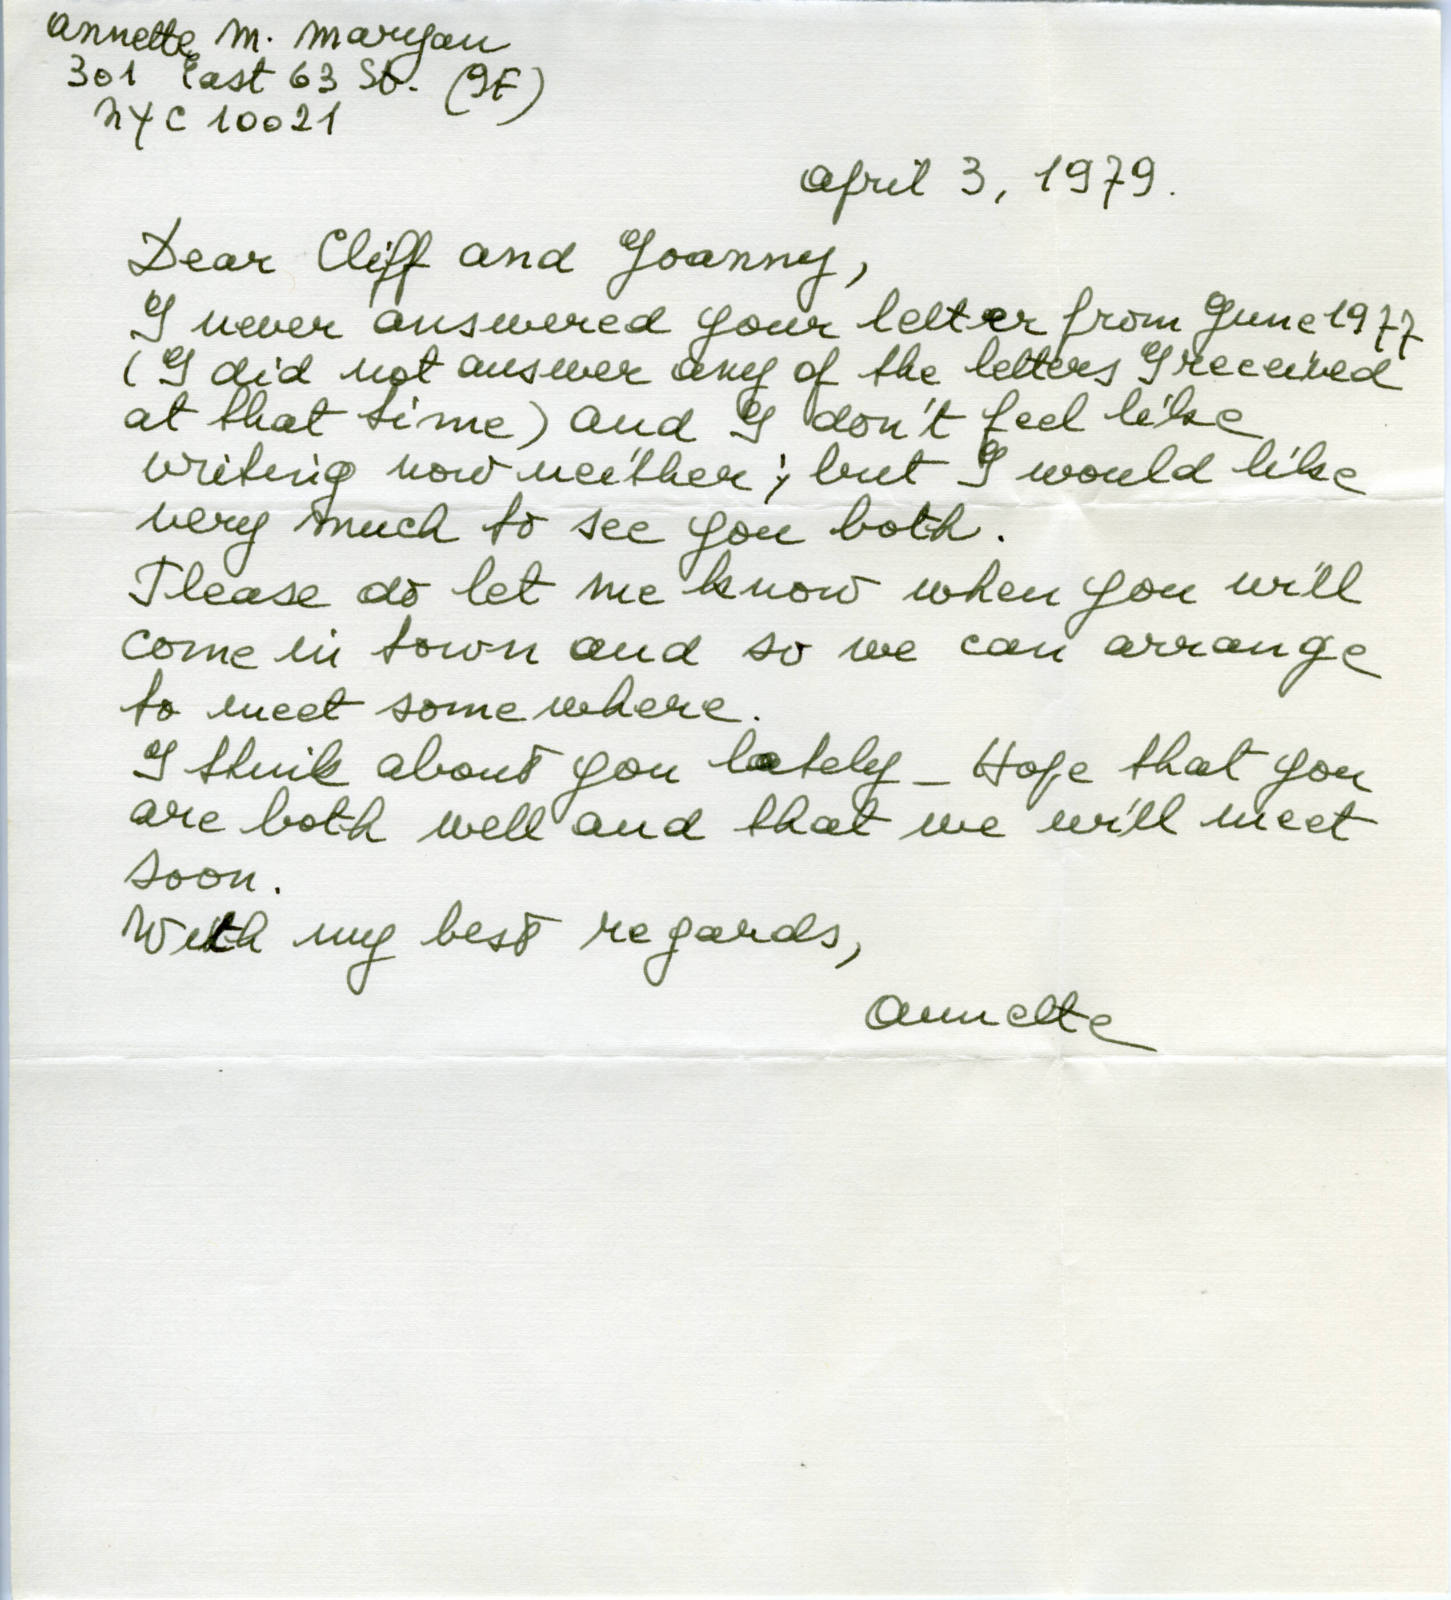 Annette M. Maryan
301 East 63 St. (9F)
NYC 10021
April 3, 1979.
Dear Cliff and Joanny,
I never answered your letter from June 1977
(I did not answer any of the letters I received
at that time) and I don't feel like
writing now neither; but I would like
very much to see you both.
Please do let me know when you will
come in town and so we can arrange
to meet somewhere.
I think about you lately - Hope that you
are both well and that we will meet
soon.
With my best regards,
Annette